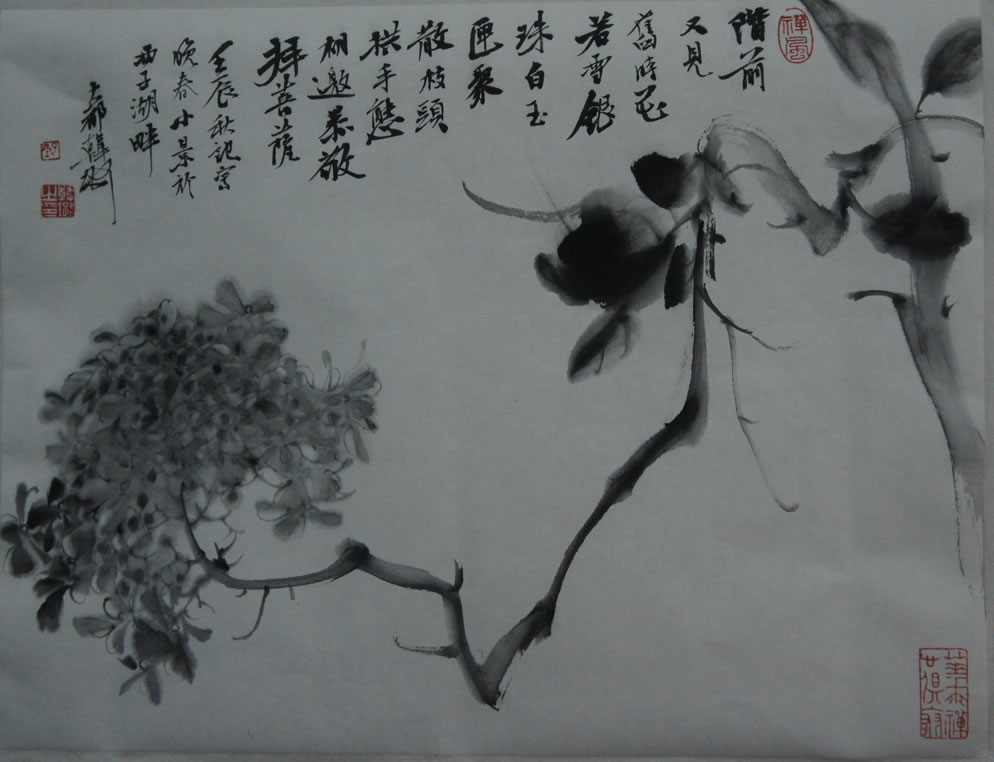 階前
又見
舊時花
若雪銀
珠白玉
匣聚
散枝頭
拱手態
相邀恭敬
拜菩薩
壬辰秋記寫
晚春小景於
西子湖畔